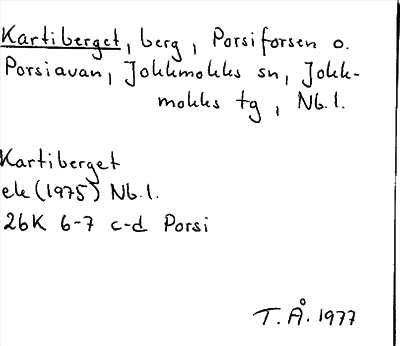 Kartiberget, berg, Porsiforsen o.
Porsiavan, Jokkmokks sn, Jokk-
mokks tg, Nb.l.
Kartiberget
ek (1975) Nb.l.
26K 6-7 c-d Porsi
T. Å. 1977